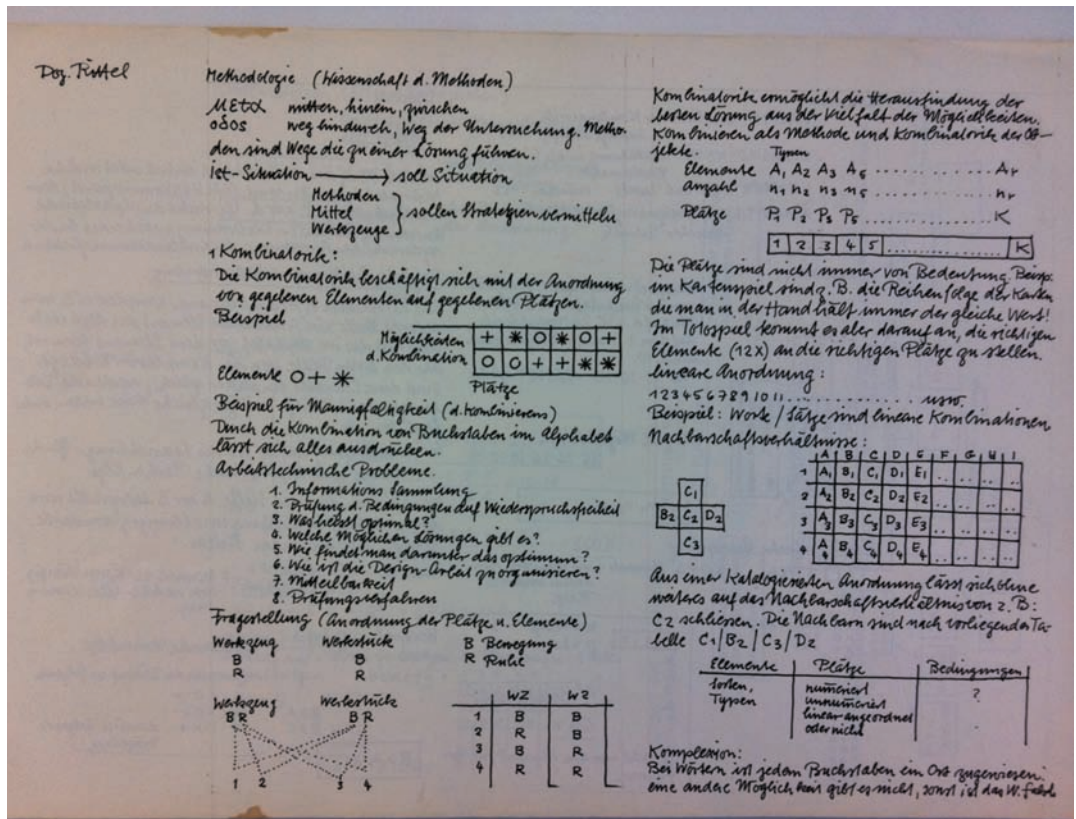 Doz. Rittel
Methodologie (Wissenschaft d. Methoden)
μετα mitten, hinein, zwischen
οδος weg hindurch, Weg der Untersuchung. Metho-
den sind Wege die zu einer Lösung führen.
ist-Situation → soll Situation
Methoden
Mittel
Werkzeuge } sollen Strategien vermitteln
1 Kombinatorik:
Die Kombinatorik beschäftigt sich mit der Anordnung
von gegebenen Elementen auf gegebenen Plätzen.
Beispiel
Möglichkeiten + * O * O +
d. Kombination O O + + * *
Elemente O + *
Plätze
Beispiel für Mannigfaltigkeit (d. Kombinierens)
Durch die Kombination von Buchstaben im Alphabet
lässt sich alles ausdrücken.
Arbeitstechnische Probleme.
1. Informations Sammlung
2. Prüfung d. Bedingungen auf Wiederspruchsfreiheit
3. Was heisst optimal?
4. Welche Möglichen Lösungen gibt es?
5. Wie findet man darunter das optimum?
6. Wie ist die Design-Arbeit zu organisieren?
7. Mitteilbarkeit
8. Prüfungsverfahren
Fragestellung (Anordnung der Plätze u. Elemente)
Werkzeug Werkstück B Bewegung
B B R Ruhe
R R
Werkzeug Werkstück
B R B R
1 2 3 4
WZ WS
1 B B
2 R B
3 B R
4 R R
Kombinatorik ermöglicht die Herausfindung der
besten Lösung aus der Vielfalt der Möglichkeiten.
Kombinieren als Methode und Kombinatorik der Ob-
jekte.
Typen
Elemente A1 A2 A3 A5 .............. Ar
Anzahl n1 n2 n3 n5 .............. nr
Plätze P1 P2 P3 P5 .............. K
1 2 3 4 5 .............. K
Die Plätze sind nicht immer von Bedeutung. Beisp.
im Kartenspiel sind z. B. die Reihenfolge der Karten
die man in der Hand hält immer der gleiche Wert!
Im Totospiel kommt es aber darauf an, die richtigen
Elemente (12x) an die richtigen Plätze zu stellen.
lineare Anordnung:
1 2 3 4 5 6 7 8 9 10 11 .............. usw.
Beispiel: Worte / Sätze sind lineare Kombinationen.
Nachbarschaftsverhältnisse:
C1
B2 C2 D2
C3
A B C D E F G H I
1 A1 B1 C1 D1 E1 .. .. .. ..
2 A2 B2 C2 D2 E2 .. .. .. ..
3 A3 B3 C3 D3 E3 .. .. .. ..
4 A4 B4 C4 D4 E4 .. .. .. ..
Aus einer Katalogisierten Anordnung lässt sich ohne
weiteres auf das Nachbarschaftsverhältnis von z. B:
C2 schliessen. Die Nachbarn sind nach vorliegender Ta-
belle C1/B2/C3/D2
Elemente Plätze Bedingungen
Sorten, numeriert ?
Typen unnumeriert
linear angeordnet
oder nicht
Komplexion:
Bei Wörtern ist jedem Buchstaben ein Ort zugewiesen.
eine andere Möglichkeit gibt es nicht, sonst ist das W. falsch